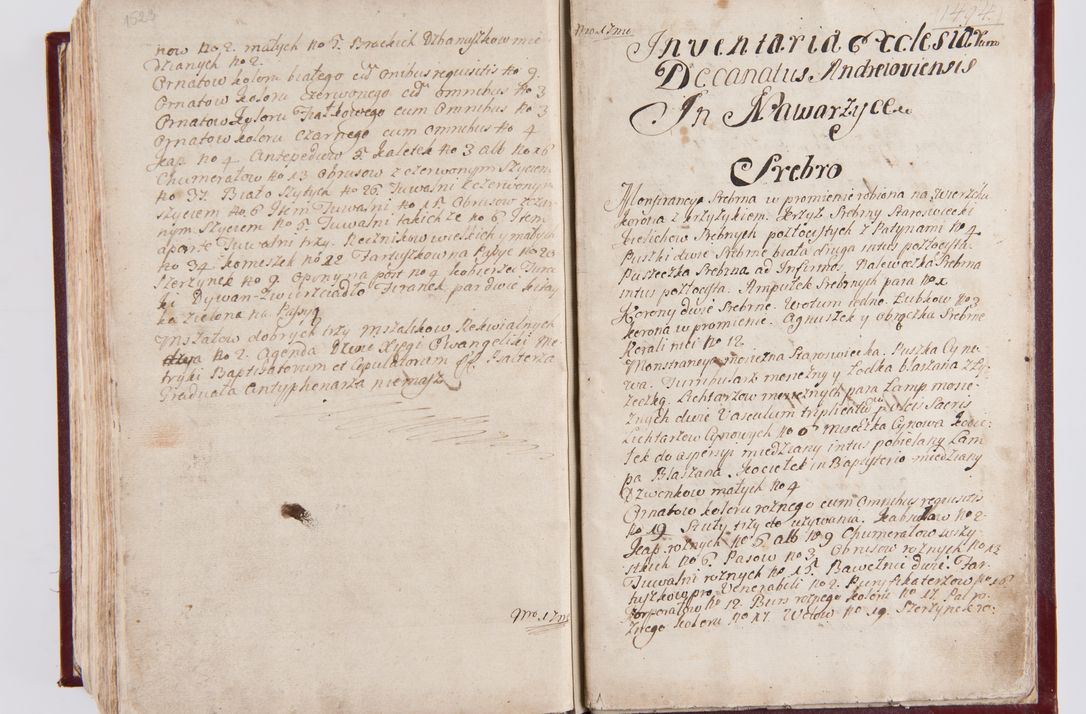 1523
now No 2. małych No 5. Brackich Dzbanyszkow mie
dzianych No 2.
Ornatow koloru białego cū omnibus requisitis No 9.
Ornatow koloru czerwonego cū omnibus No 3
Ornatow koloru Fiałkowego cum omnibus No 3
Ornatow koloru czarnego cum omnibus No 4
kap No 4 Antepedyow 5. Paletek No 3 alb No 16
Chumerałow No 13 obrusow z czerwonym szyciem
No 37. Biało szytych No 26. Tuwalni z czerwonym
szyciem No 6 Item Tuwalni No 15 Obrusow z czar
nym szyciem No 5. Tuwalni takichże No 6 Item
aparte Tuwalni trzy. Ręcznikow wielkich y małych
No 34. komeszek No 12 Fartuszkow na Pasye No 20
Szerzynek No 9. Opony na port No 4 kobierzec Ture
ki Dywan Zwierciadło Firanek par dwie kitay
ka zielona na Pasyą
Mszałow dobrych trzy Mszalikow Rekwialnych
No 2. Agenda Xięgi Ewangeliki Me
tryki Baptisatorum et Copulatorum Psalterza
Graduała Antyphonarza niemasz
Mro. 17mo
Mro. 17mo
1494
Inventaria Ecclesiarum
Decanatus Andreioviensis
In Nawarzyce
Srebro
Monstrancya Srebrna w promienie robiona na zwierzchu
korona z krzyżykiem. krzyż Srebrny Staroswiecki
kielichow Srebrnych pozłocistych z Patynami No 4
Puszki dwie Srebrne biała druga intus pozłocista.
Puszeczka Srebrna ad Infirmo. Naleweczka Srebrna
intus pozłocista. Ampułek Srebrnych para No x
Korony dwie Srebrne. Wotum jedno. Łubkow No 3
korona w promienie. Agnuszek y obrączka Srebrne
korali nici No 12
Monstrancya mosiężna Staroswiecka. Puszka Cyno
wa. Turribularz mosiężny y Łodka blaszana z Ły
żeczką. Lichtarzow mosiężnych para Lamp mosię
żnych dwie Vasculum triplicatū pro Sacris
Lichtarzow Cynowych No 6 Miseczka Cynowa kocie
łek do aspersyi miedziany intus pobielany Lam
pa Blaszana. kociełek in Baptysterio miedziany
Dzwonkow małych No 4
Ornatow koloru rożnego cum omnibus requisitis
No 19 Stuły trzy do używania. No 2
kap rożnych No 5 alb No 9 Chumerałow wszy
stkich No 6. Pasow No 3. Obrusow rożnych No 13
Tuwalni rożnych No 15. Bawełni dwie. Far
tuszkow pro Venerabili No 2. Puryfikaterzow No 16
korporałow No 12. Burs rożnego koloru No 17. Pal ro
żnego koloru No 17. Welow No 19. Szerzynek ro